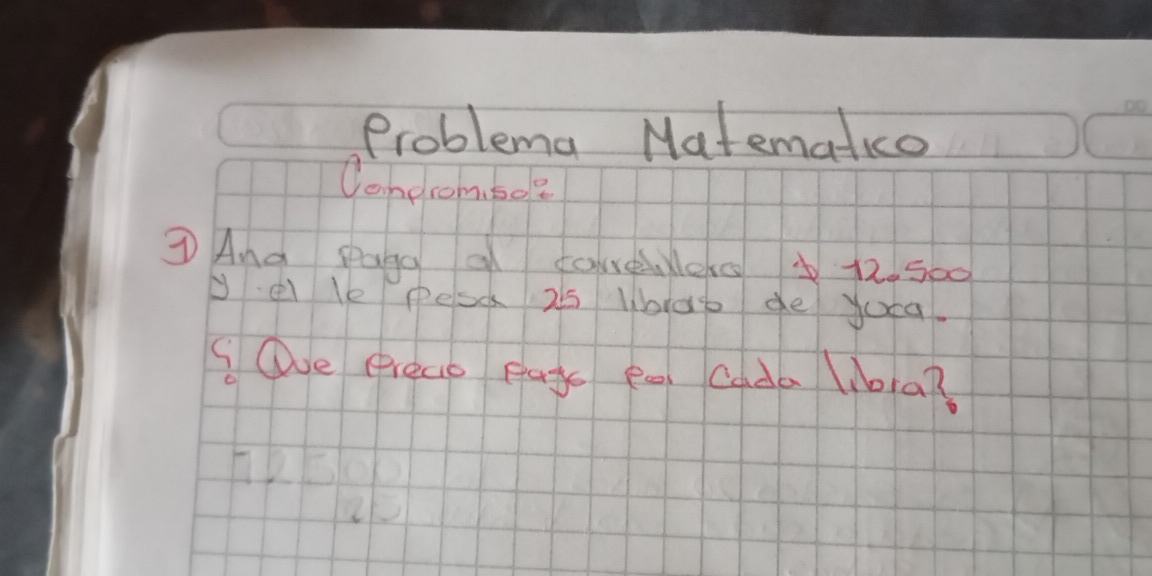 Problema Matematico
Compromiso:
① Ana Paga al carretillero $ 12.500
y el le pesa 25 libras de yuca.
¿Que precio pago por Cada libra?
12500
25